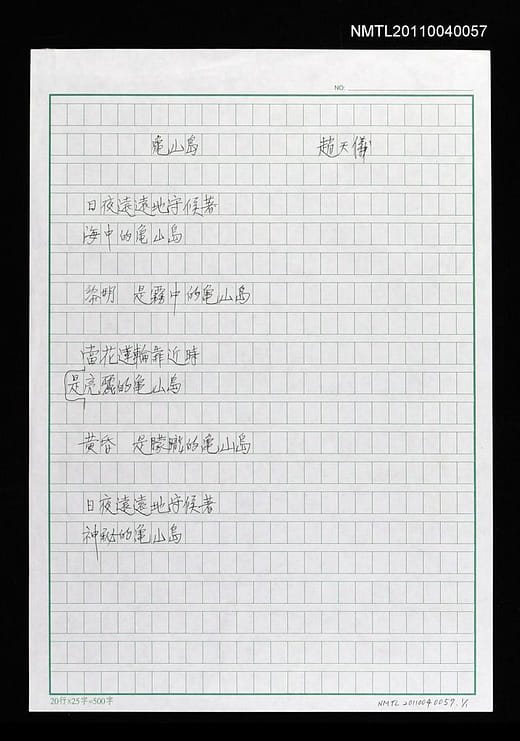 NMTL20110040057
NO:
龜山島 趙天儀
日夜遠遠地守候著
海中的龜山島
黎明 是霧中的龜山島
當花蓮輪靠近時
是亮麗的龜山島
黃昏 是朦朧的龜山島
日夜遠遠地守候著
神秘的龜山島
20行×25字=500字
NMTL 20110040057.1/1